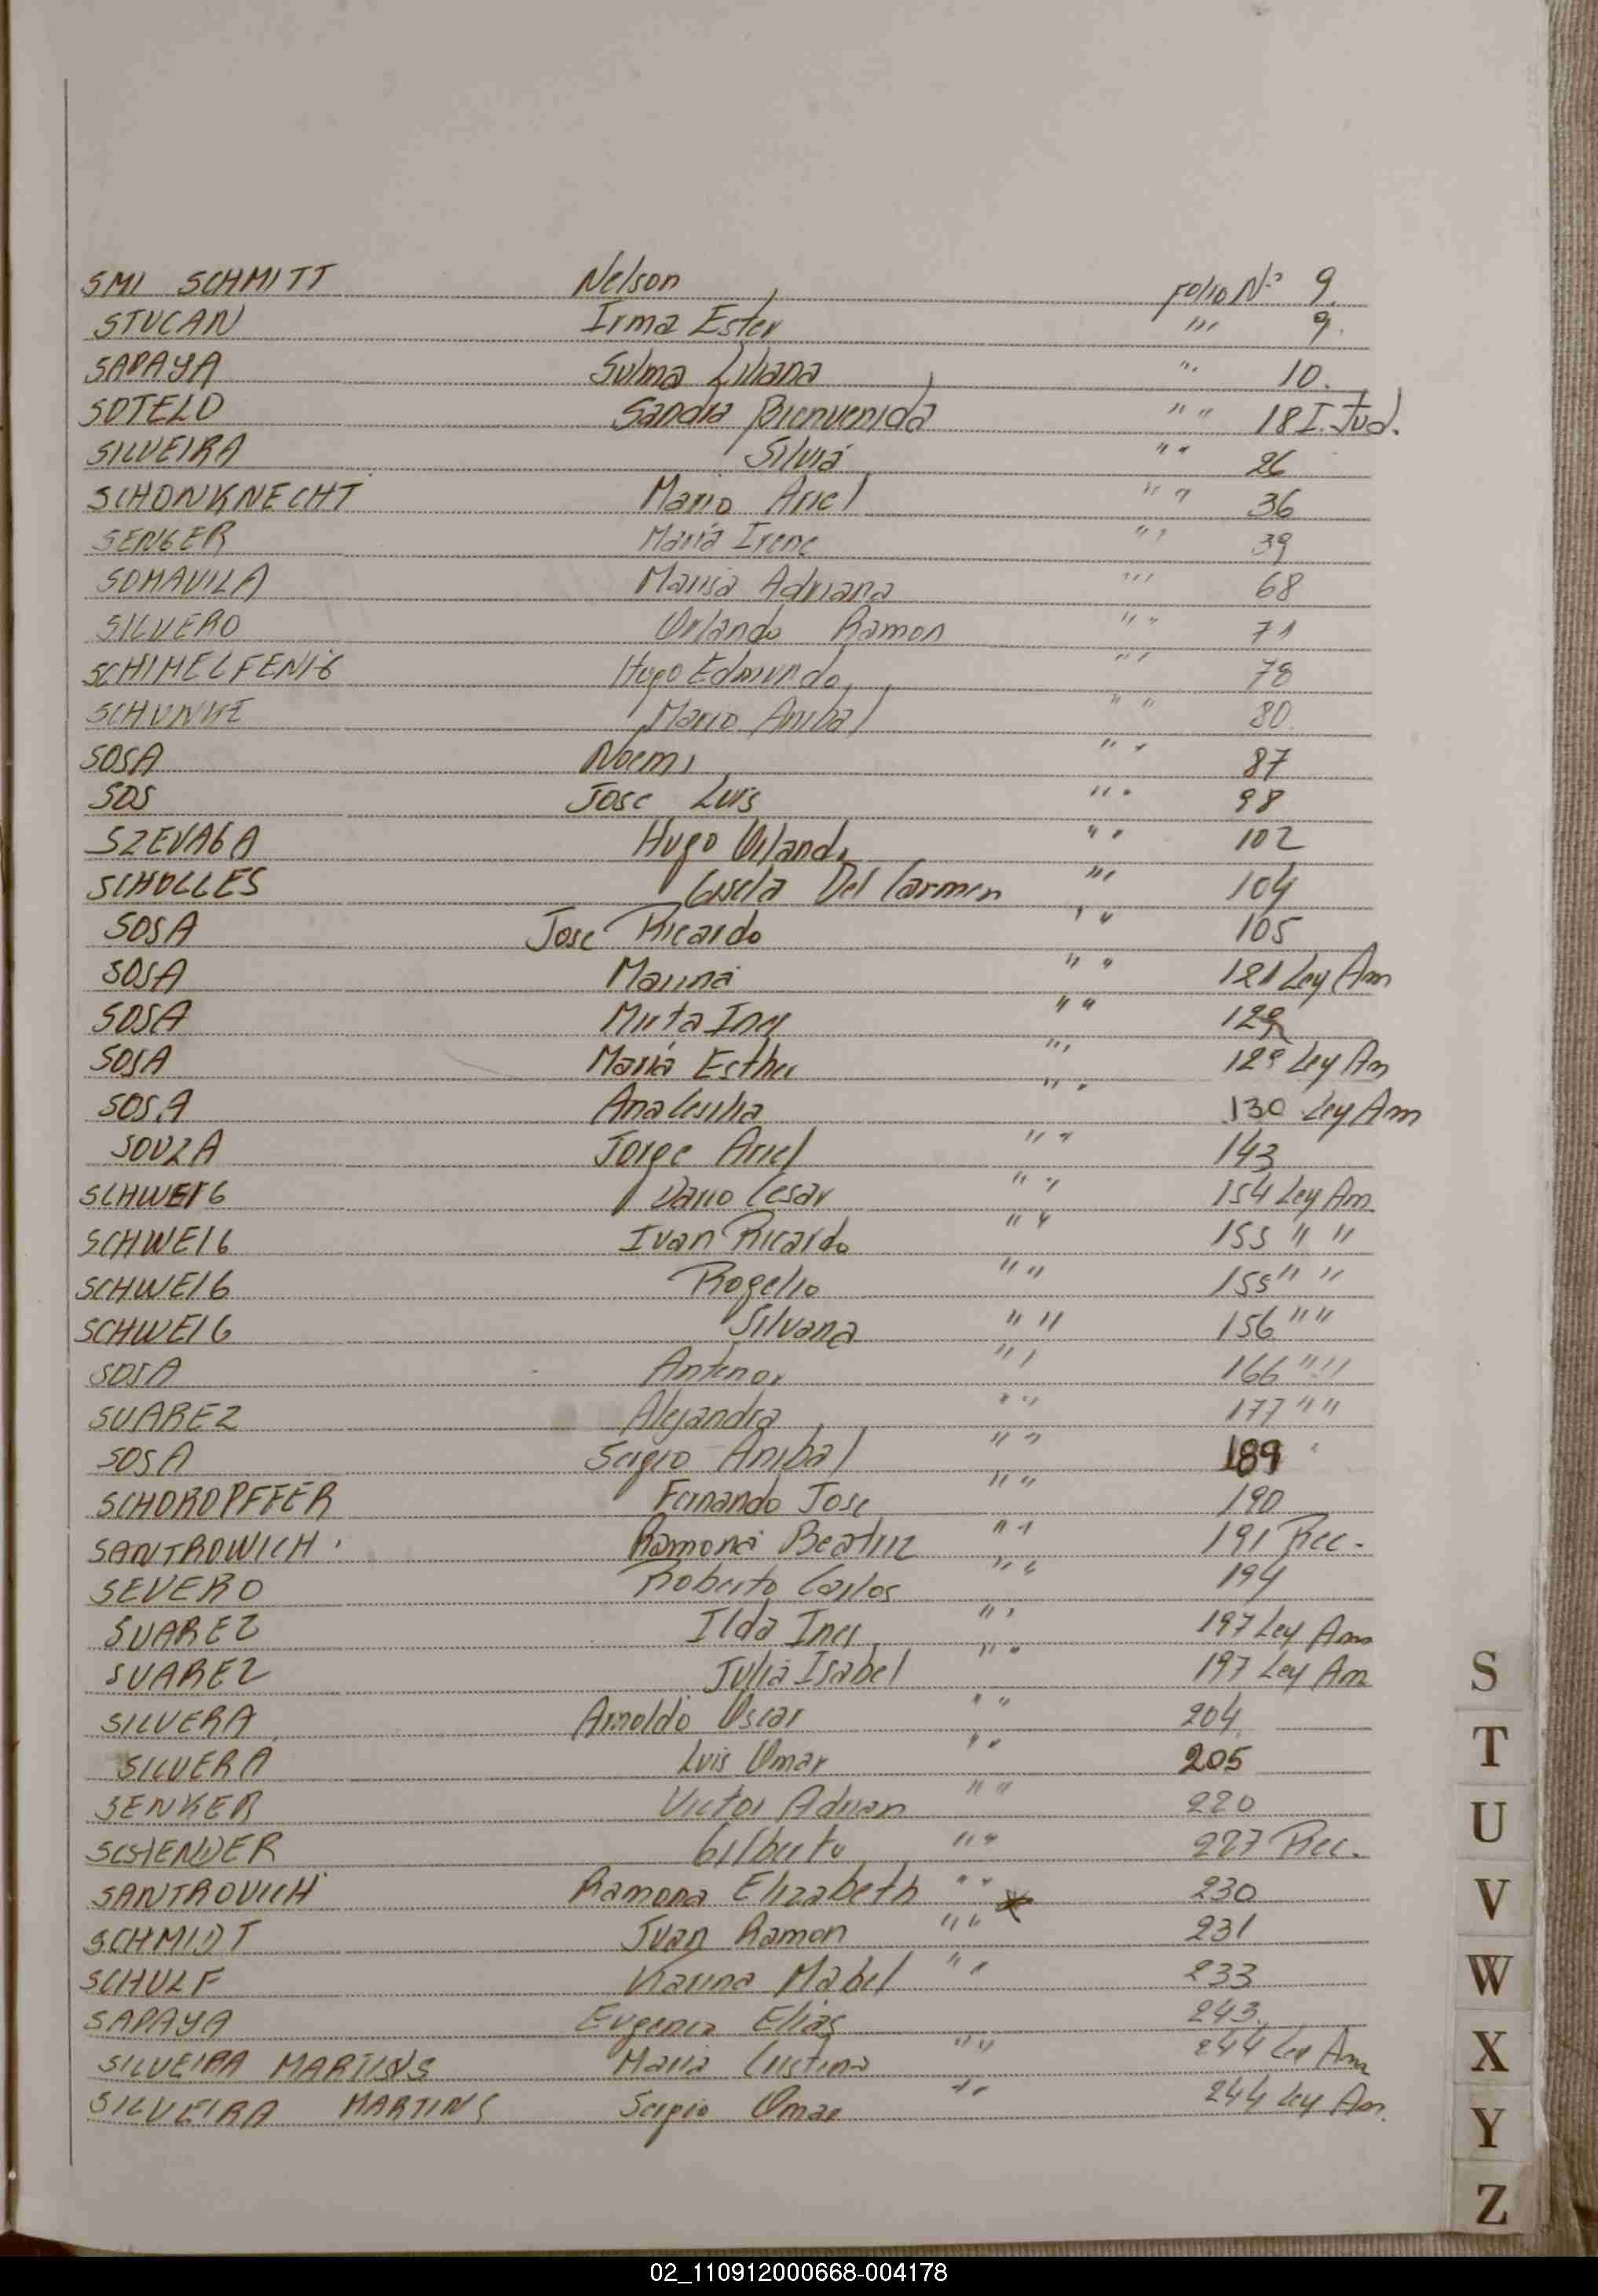 SMI SCHMITT Nelson Folio Nº 9
STUCAN Irma Ester " " 9.
SAPAYA Sulma Liliana " 10.
SOTELO Sandra Bienvenida " " 18 I. Jud.
SILVEIRA Silvia " " 26
SCHONKNECHT Mario Ariel " " 36
SENGER Maria Irene " " 39
SOMAVILA Marisa Adriana " " 68
SILVERO Orlando Ramon " " 71
SCHIMELFENIG Hugo Edmundo " " 78
SCHUNKE Mario Anibal " " 80
SOSA Noemi " " 87
SOS Jose Luis " " 98
SZEVAGA Hugo Orlando " " 102
SCHOLLES Gisela Del Carmen " " 104
SOSA Jose Ricardo " " 105
SOSA Marina " " 121 Ley Am
SOSA Mirta Ines " " 129
SOSA Maria Esther " " 129 Ley Am
SOSA Ana Cecilia " " 130 Ley Am
SOUZA Jorge Ariel " " 143
SCHWEIG Dario Cesar " " 154 Ley Am.
SCHWEIG Ivan Ricardo " " 155 " "
SCHWEIG Rogelio " " 155 " "
SCHWEIG Silvana " " 156 " "
SOSA Antenor " " 166 " "
SUAREZ Alejandra " " 177 " "
SOSA Sergio Anibal " " 189
SCHOROPFFER Fernando Jose " " 190
SANTROWICH Ramona Beatriz " " 191 Rec.
SEVERO Roberto Carlos " " 194
SUAREZ Ilda Ines " " 197 Ley Am
SUAREZ Julia Isabel " " 197 Ley Am
SILVERA Arnoldo Oscar " " 204
SILVERA Luis Omar " " 205
SENKER Victor Adrian " " 220
Gilberto " " 227 Rec.
SANTROVICH Ramona Elizabeth " " 230
SCHMIDT Juan Ramon " " 231
SCHULF Karina Mabel " " 233
SAPAYA Eugenia Elias 243.
SILVEIRA MARTINS Maria Cristina " " 244 Ley Am
SILVEIRA MARTINS Sergio Omar " " 244 Ley Am.
S
T
U
V
W
X
Y
Z
02_110912000668-004178